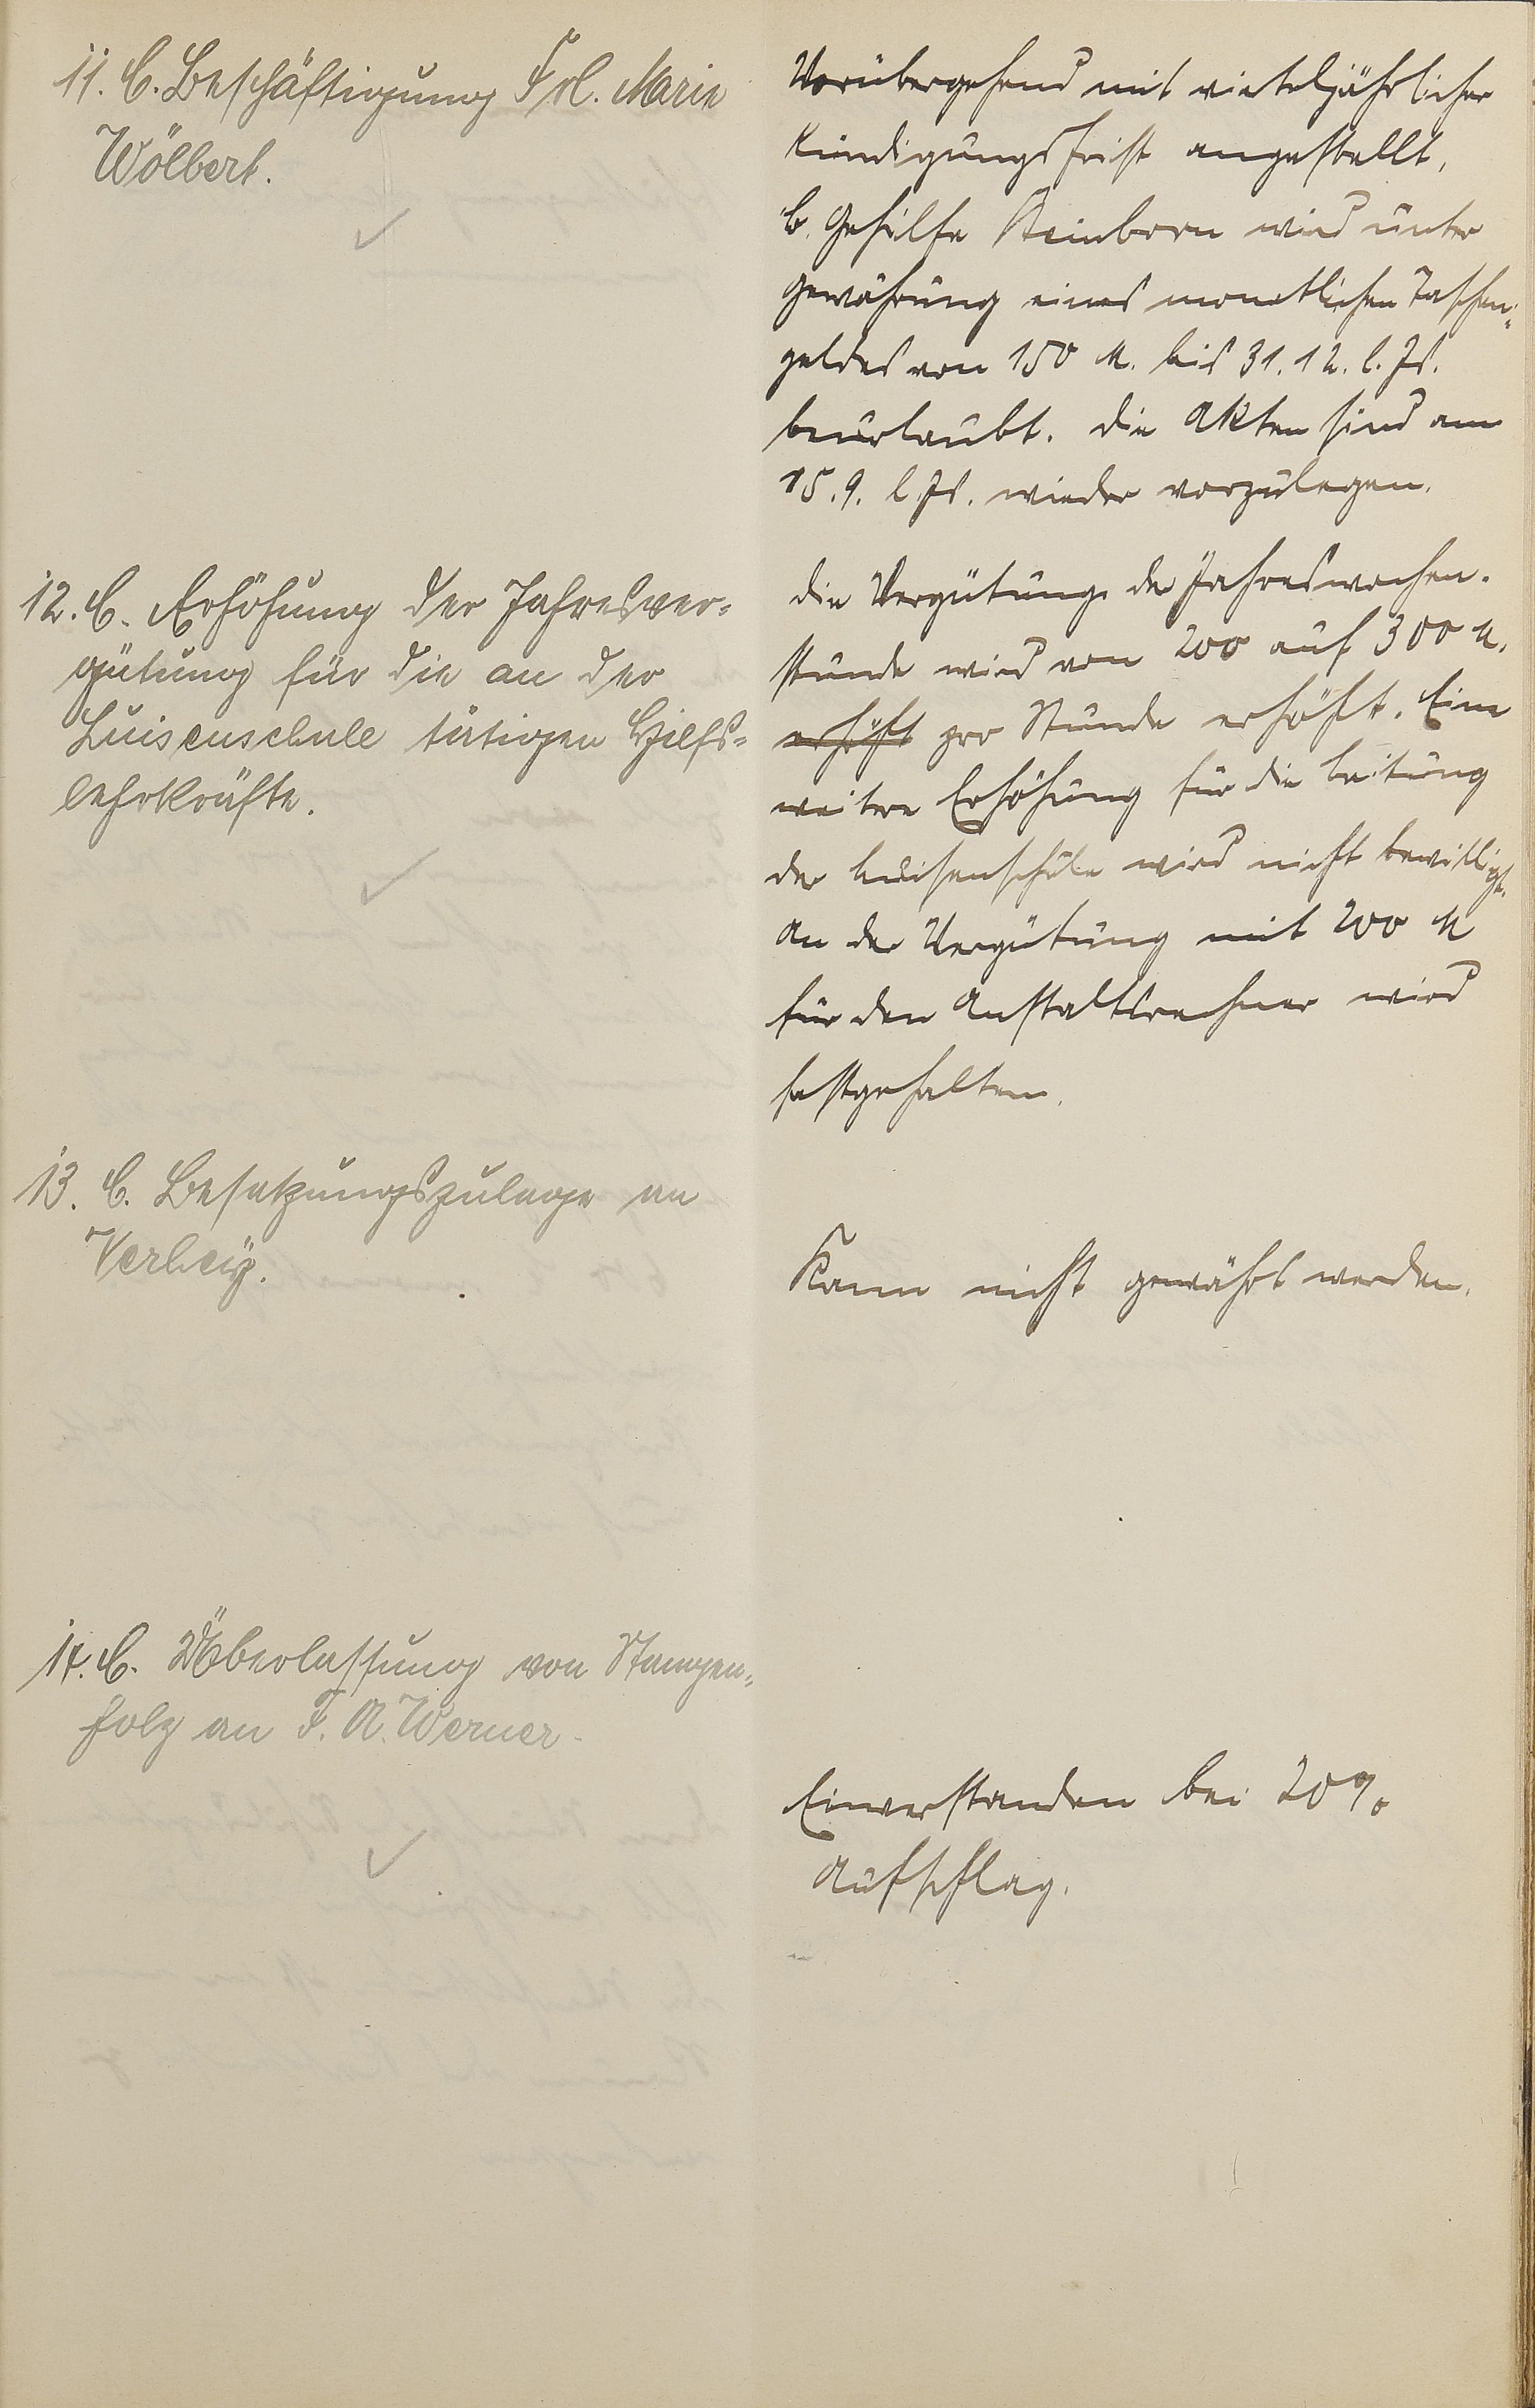 11. C. Beschäftigung Frl. Marie
Wölbert.
Vorübergehend mit vierteljährlicher
Kündigungsfrist angestellt,
b. Gehilfe Steinborn wird unter
Gewährung eines monatlichen Taschen-
geldes von 150 M. bis 31.12. l. Js.
beurlaubt. Die Akten sind am
15.9. l. Js. wieder vorzulegen.
12. C. Erhöhung der Jahresver-
gütung für die an der
Luisenschule tätigen Hilfs-
lehrkräfte.
Die Vergütung der Jahreswochen-
stunde wird von 200 auf 300 M.
erhöht pro Stunde erhöht. Eine
weitere Erhöhung für die Leitung
der Luisenschule wird nicht bewilligt.
An der Vergütung mit 200 M
für den Anstaltsrechner wird
festgehalten.
13. C. Besatzungszulage an
Verbeÿ.
Kann nicht gewährt werden.
14. C. Überlassung von Stangen-
holz an F. A. Werner.
Einverstanden bei 20%
Aufschlag.